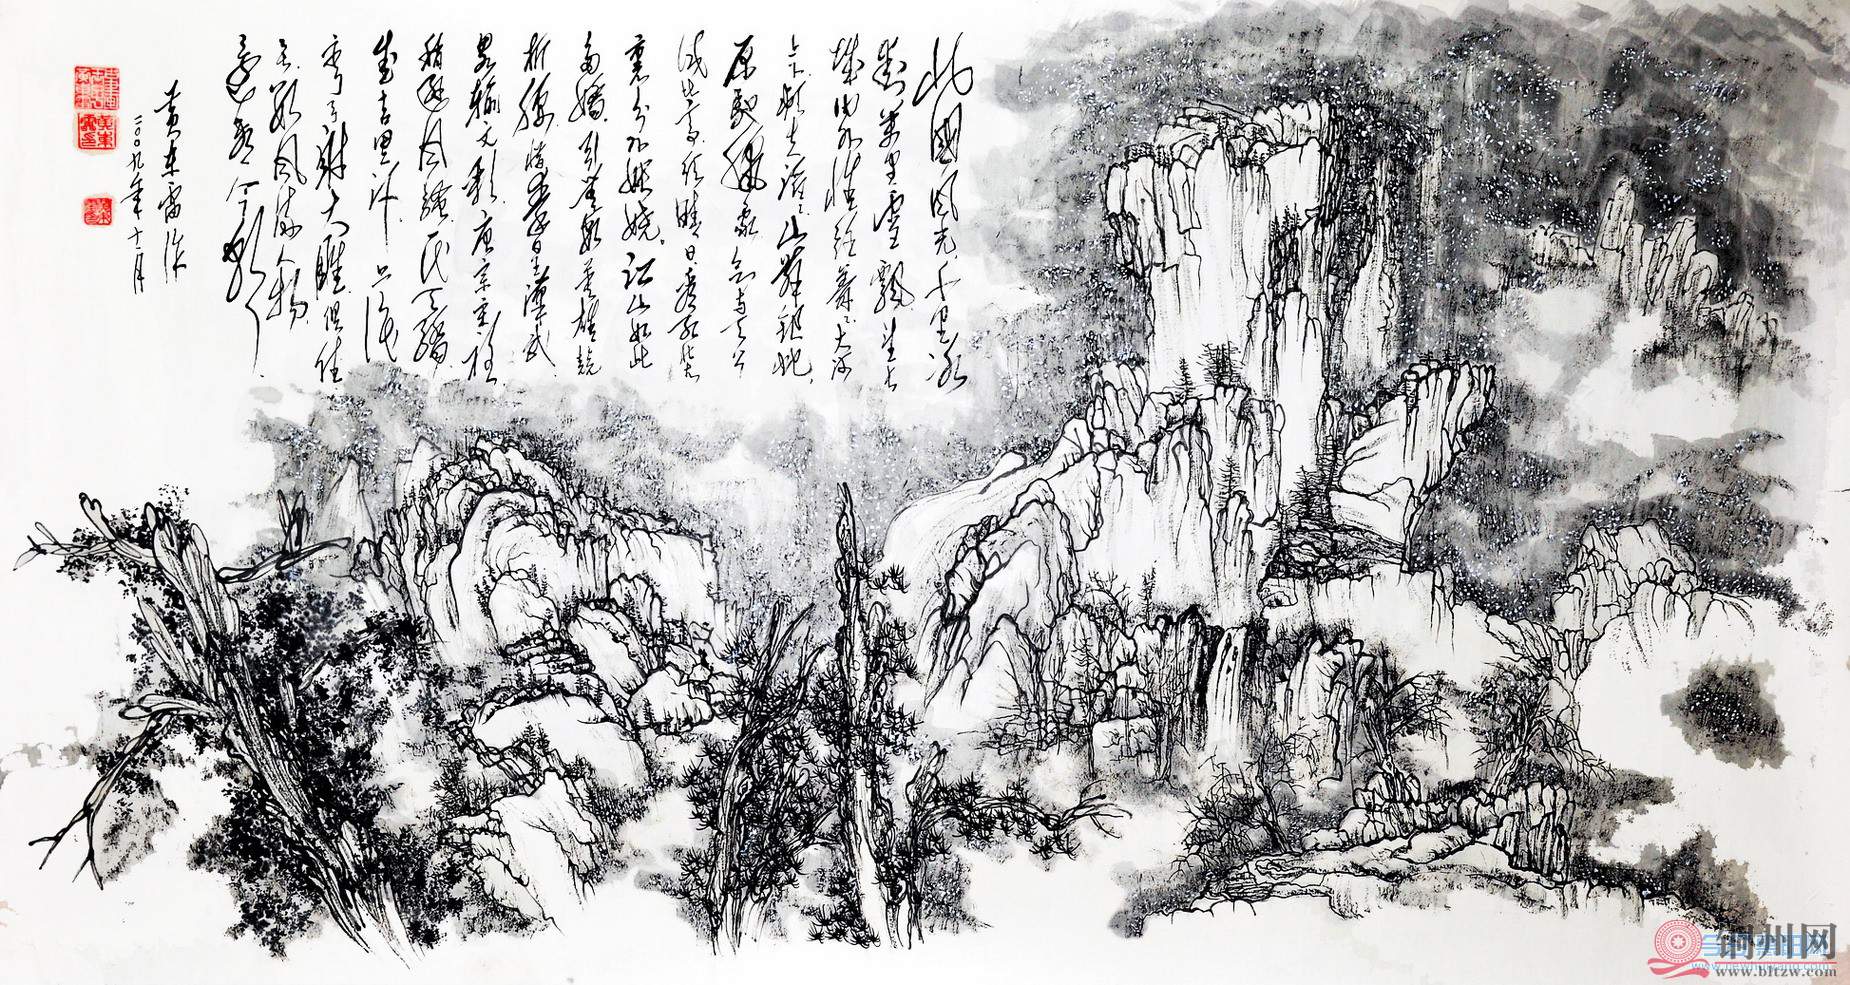 北國風光千里冰
封萬里雪飄望長
城内外惟餘莽莽大河
上下頓失滔滔山舞銀蛇
原馳蠟象欲与天公
試比高須晴日看紅裝素
裹分外妖嬈江山如此
多嬌引無數英雄競
折腰惜秦皇漢武
略輸文彩唐宗宋祖
稍遜風骚一代天驕
成吉思汗只识
彎弓射大雕俱往
矣数風流人物
還看今朝
黄東雷作
二〇〇九年十二月
铜州网
www.bltzw.com